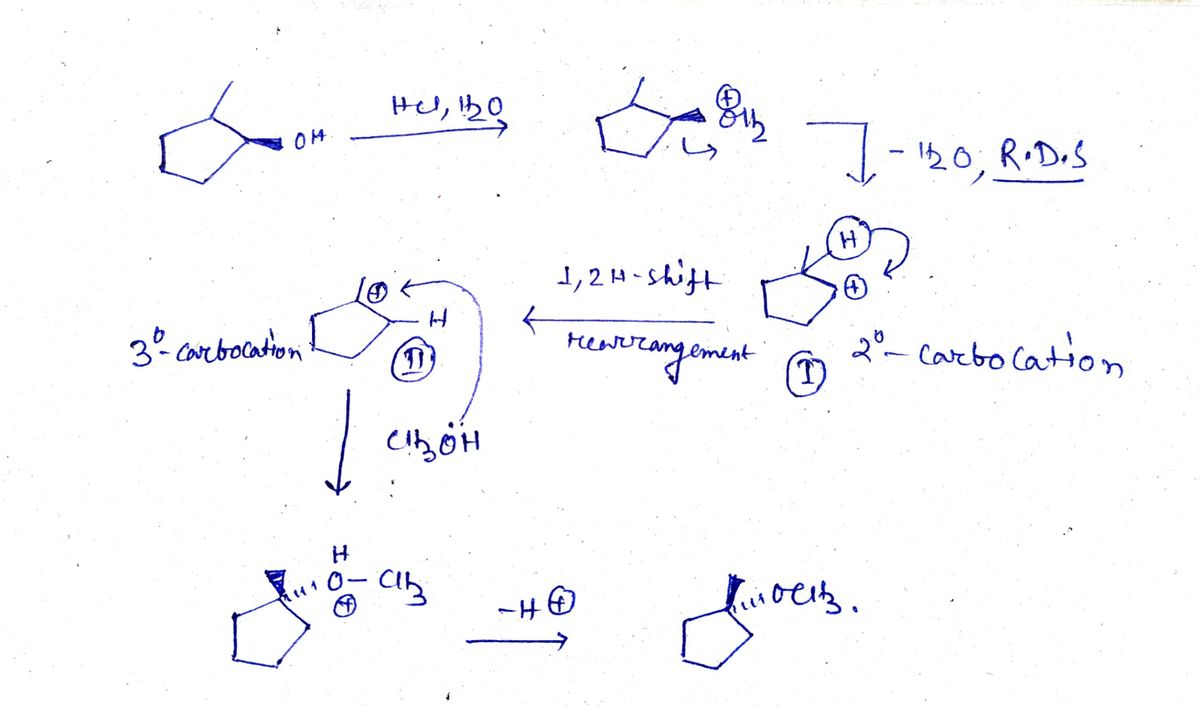 OH
HCl, H2O
⊕
OH2
- H2O, R.D.S
H
⊕
1,2 H-shift
rearrangement
I
2°- carbocation
⊕
H
3°- carbocation
II
CH3ÖH
H
O- CH3
⊕
-H⊕
OCH3.